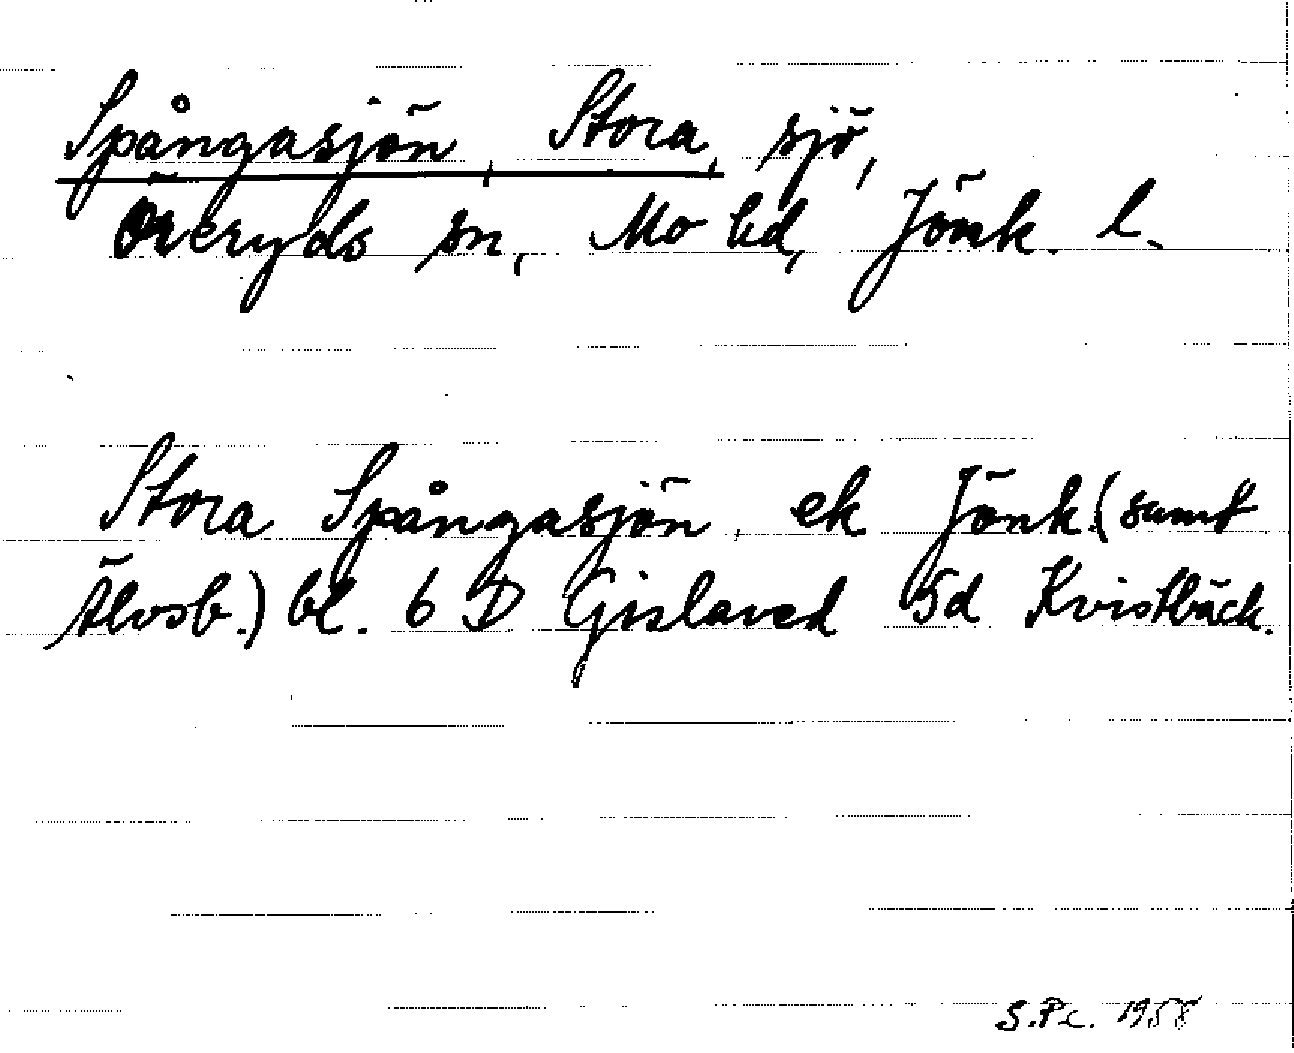 Spångasjön, Stora, sjö,
Öreryds sn, Mo hd, Jönk. l.
Stora Spångasjön, ek Jönk. (samt
Älvsb.) bl. 6 D Gislaved 5d Kvistbäck.
S.Pc. 1958